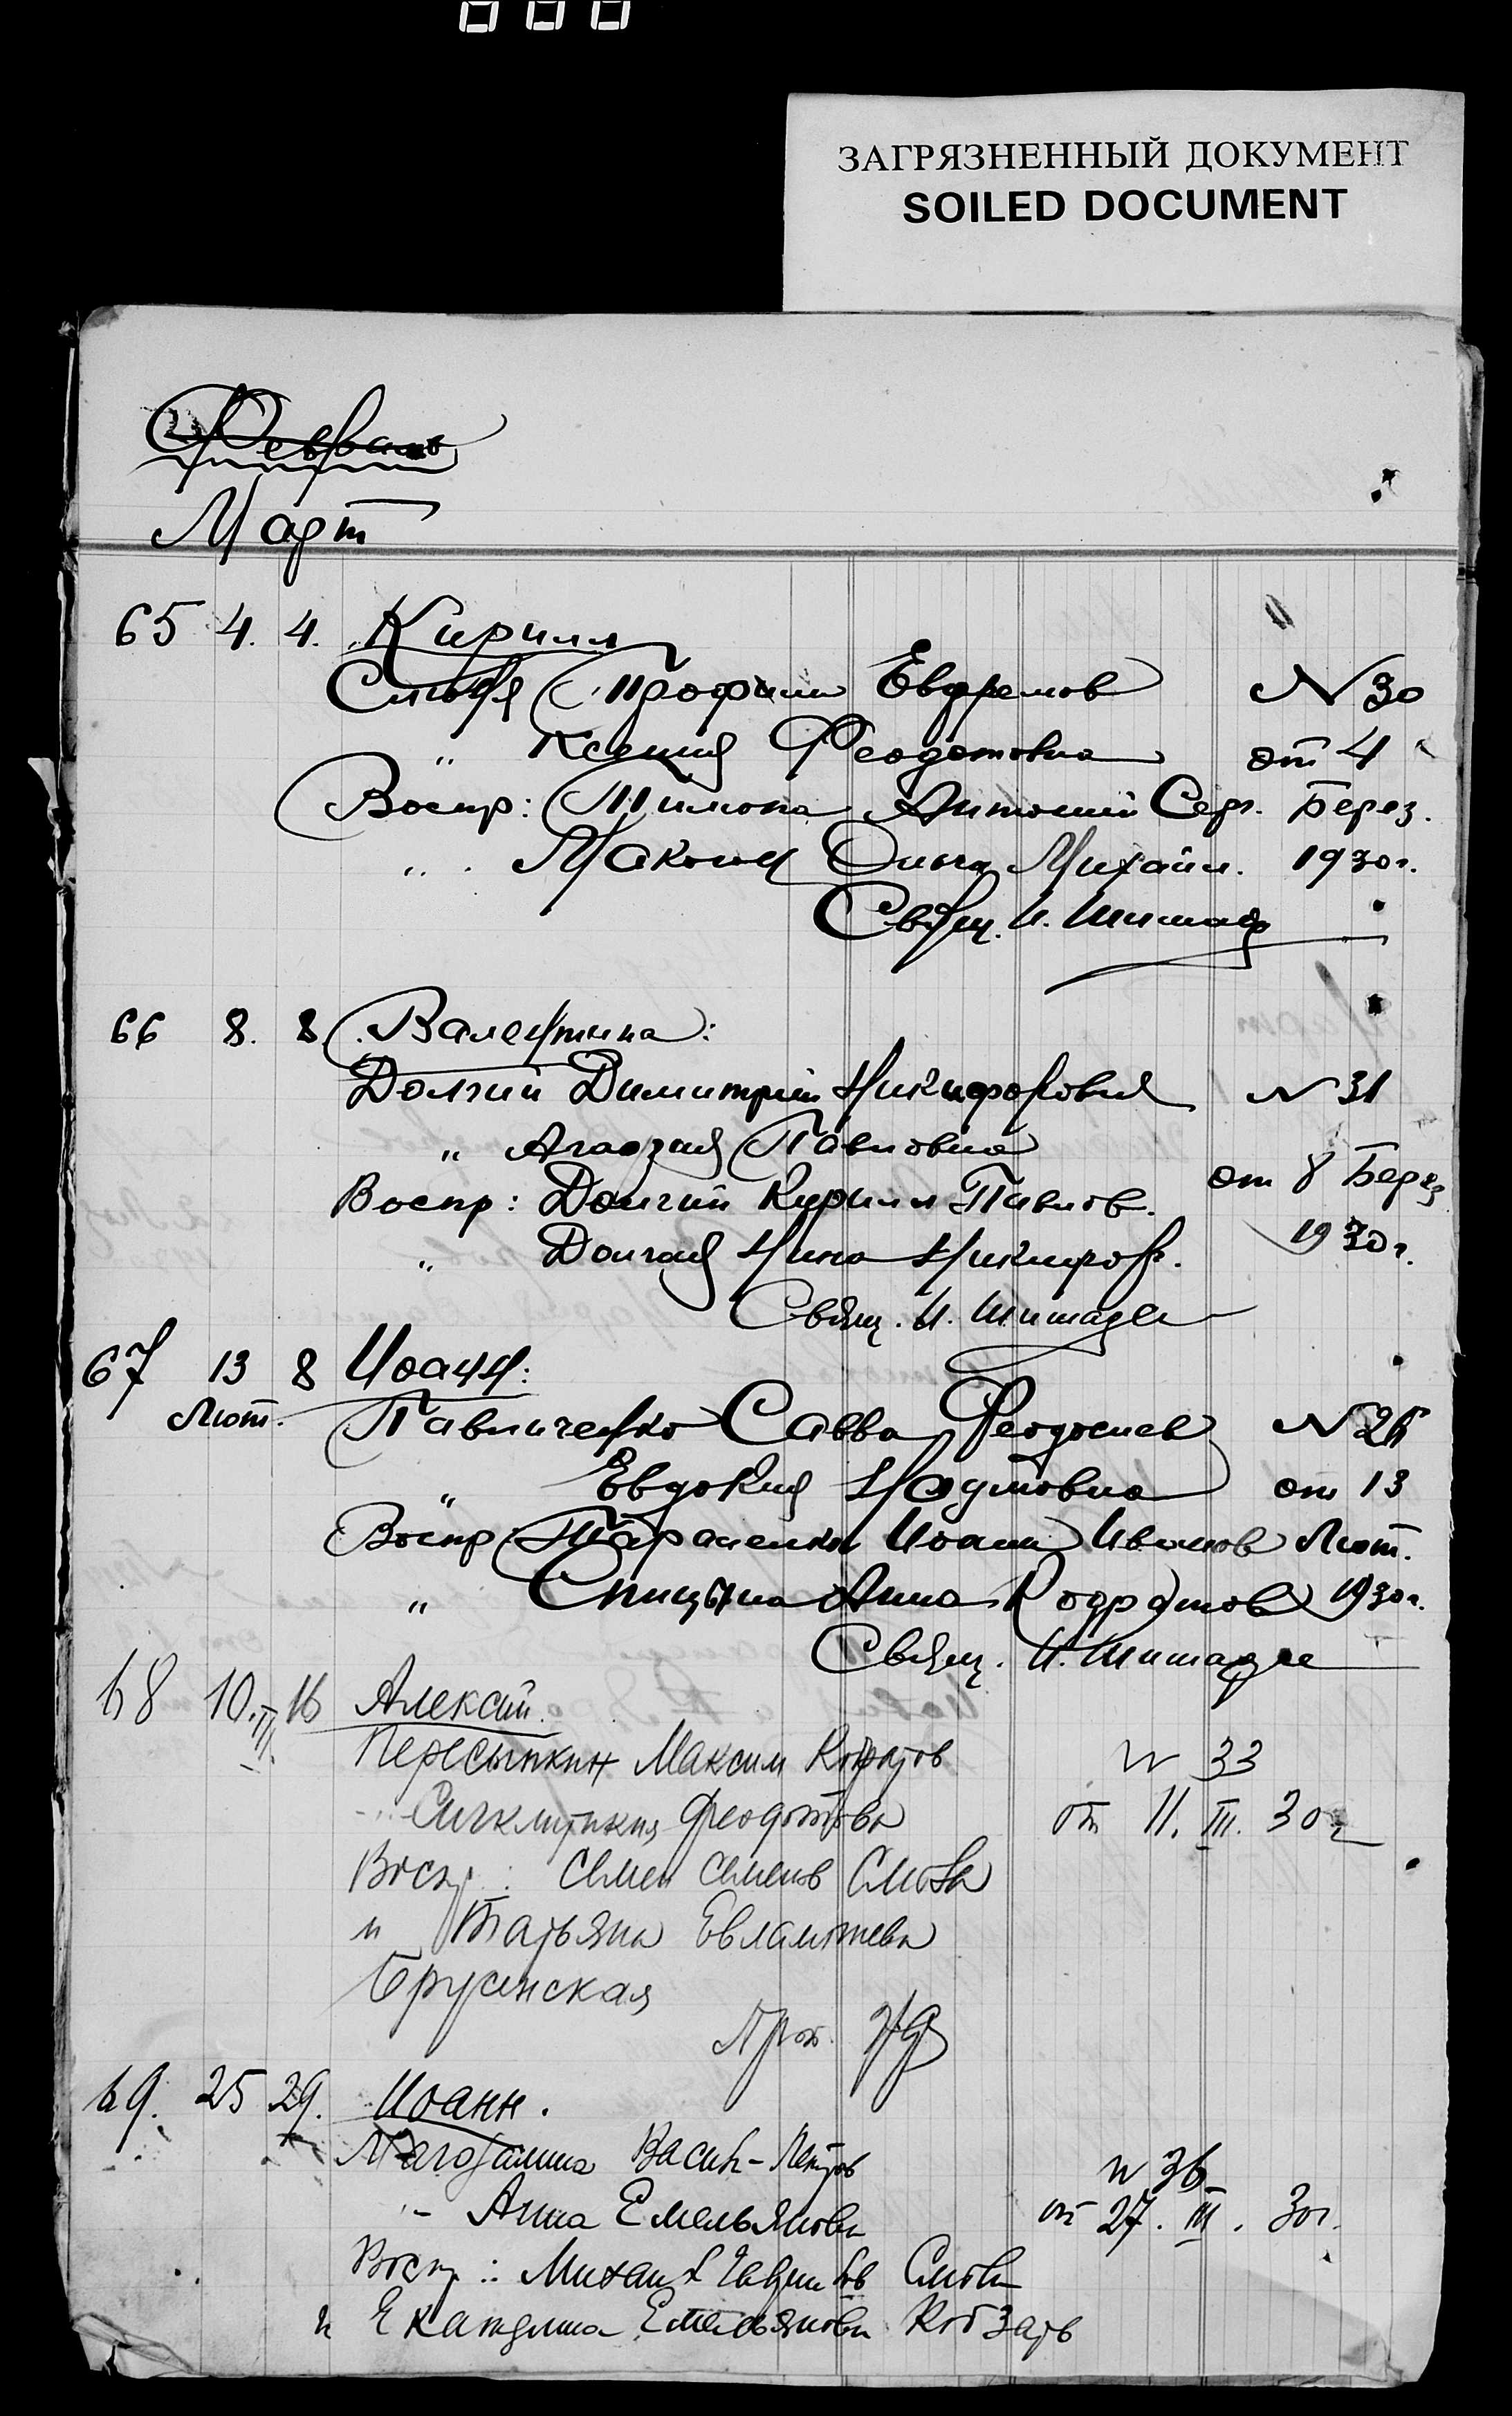 ЗАГРЯЗНЕННЫЙ ДОКУМЕНТ
SOILED DOCUMENT
Февраль
Март
65 4. 4. Кирилл
Трофим Евфремов N 30
" Ксения Феодотовна от 4
Воспр: Антоний Серг. Берез.
" Михайл. 1930 г.
Свящ. И.
66 8. 8. Валентина:
Долгий Димитрий Никифорович N 31
" Агафия Павловна
Воспр: Долгий Кирилл Павлов. от 8 Берез
" Долгая Нина Никифор. 1930 г.
Свящ. И.
67 13 8 Иоанн:
Лют. Павличенко Савва Феодосиев N 26
" Евдокия от 13
Воспр: Тараненко Иоанн Иванов Лют.
" Спицына Анна Кодратов 1930 г.
Свящ. И.
68 10.III. 16 Алексий.
Пересыпкин Максим Кодратов N 33
Феодотовна от 11. III. 30 г
Воспр: Семен Семенов
и Татьяна Евлампиева
Брусенская
Прот.
69. 25 29. Иоанн.
Васил- Петров N 36
" Анна Емельянова от 27. III. 30 г.
Воспр: Михаил
и Екатерина Емельянова Кобзарь